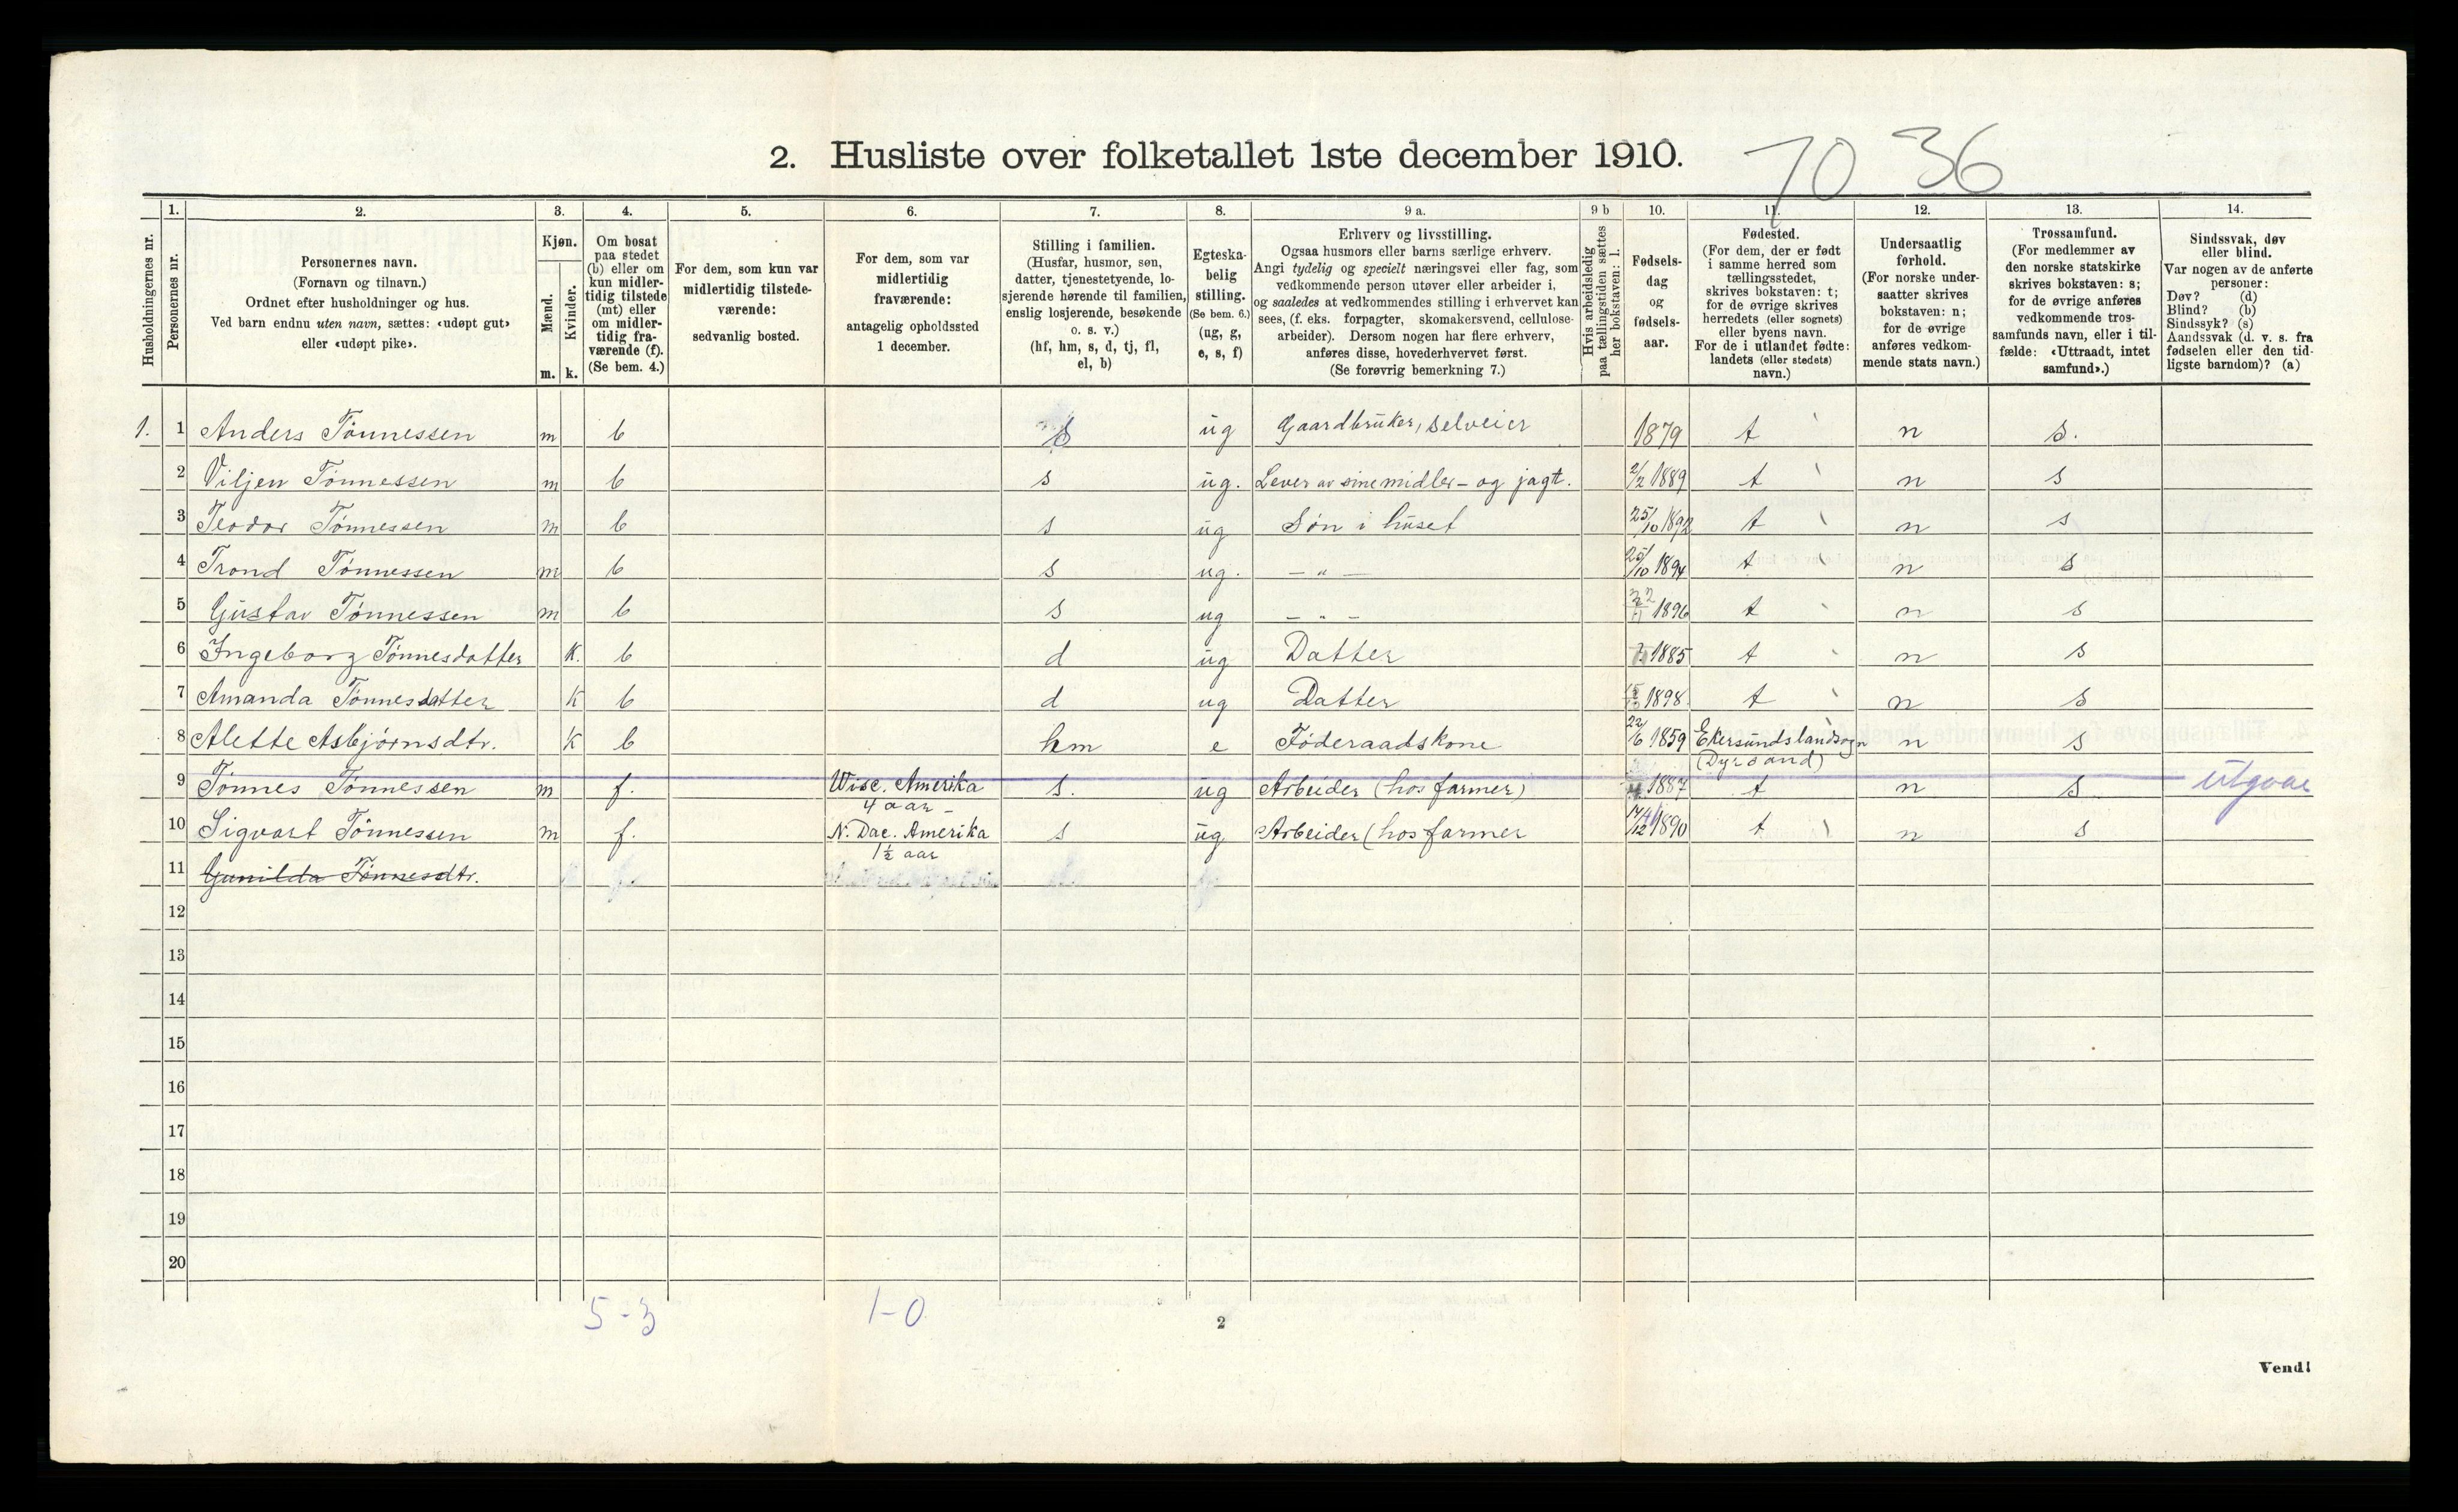 2. Husliste over folketallet 1ste december 1910.
70 36
Husholdningernes nr.
1.
Personernes nr.
2.
Personernes navn.
(Fornavn og tilnavn.)
Ordnet efter husholdninger og hus.
Ved barn endnu uten navn, sættes: «udøpt gut»
eller «udøpt pike».
3.
Kjøn.
Mænd.
Kvinder.
m. k.
4.
Om bosat
paa stedet
(b) eller om
kun midler-
tidig tilstede
(mt) eller
om midler-
tidig fra-
værende (f).
(Se bem. 4.)
5.
For dem, som kun var
midlertidig tilstede-
værende:
sedvanlig bosted.
6.
For dem, som var
midlertidig
fraværende:
antagelig opholdssted
1 december.
7.
Stilling i familien.
(Husfar, husmor, søn,
datter, tjenestetyende, lo-
sjerende hørende til familien,
enslig losjerende, besøkende
o. s. v.)
(hf, hm, s, d, tj, fl,
el, b)
8.
Egteska-
belig
stilling.
(Se bem. 6.)
(ug, g,
e, s, f)
9 a.
Erhverv og livsstilling.
Ogsaa husmors eller barns særlige erhverv.
Angi tydelig og specielt næringsvei eller fag, som
vedkommende person utøver eller arbeider i,
og saaledes at vedkommendes stilling i erhvervet kan
sees, (f. eks. forpagter, skomakersvend, cellulose-
arbeider). Dersom nogen har flere erhverv,
anføres disse, hovederhvervet først.
(Se forøvrig bemerkning 7.)
9 b
Hvis arbeidsledig
paa tællingstiden sættes
her bokstaven: l.
10.
Fødsels-
dag
og
fødsels-
aar.
11.
Fødested.
(For dem, der er født
i samme herred som
tællingsstedet,
skrives bokstaven: t;
for de øvrige skrives
herredets (eller sognets)
eller byens navn.
For de i utlandet fødte:
landets (eller stedets)
navn.)
12.
Undersaatlig
forhold.
(For norske under-
saatter skrives
bokstaven: n;
for de øvrige
anføres vedkom-
mende stats navn.)
13.
Trossamfund.
(For medlemmer av
den norske statskirke
skrives bokstaven: s;
for de øvrige anføres
vedkommende tros-
samfunds navn, eller i til-
fælde: «Uttraadt, intet
samfund».)
14.
Sindssvak, døv
eller blind.
Var nogen av de anførte
personer:
Døv? (d)
Blind? (b)
Sindssyk? (s)
Aandssvak (d. v. s. fra
fødselen eller den tid-
ligste barndom)? (a)
1. 1 Anders Tønnessen m b s ug Gaardbruker, selveier 1879 t n s.
2 Viljen Tønnessen m b s ug. Lever av sine midler - og jagt. 2/2 1889 t n s
3 Teodor Tønnessen m b s ug Søn i huset 25/10 1892 t n s
4 Trond Tønnessen m b s ug. - " - 25/10 1894 t n s
5 Gustav Tønnessen m b s ug - " - 1896 t n s
6 Ingeborg Tønnesdatter K. b d ug Datter 1885 t n s
7 Amanda Tønnesdatter K b d ug Datter 1898 t n s
8 Alette Asbjørnsdtr. K b hm e Føderaadskone 22/6 1859 Ekersunds landsogn n s
(Dyrsand)
9 Tønnes Tønnessen m f. Wisc. Amerika s. ug Arbeider (hos farmer) 1887 t n s utgaar
4 aar -
10 Sigvart Tønnessen m f. N. Dac. Amerika s ug Arbeider (hos farmer 1890 t n s
1½ aar
11 Gunilda Tønnesdtr.
12
13
14
15
16
17
18
19
20
5-3 1-0
2
Vend!